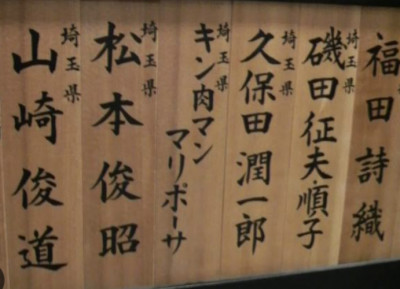 福田詩織
埼玉県
磯田征夫・順子
埼玉県
久保田潤一郎
キン肉マン
マリポーサ
埼玉県
松本俊昭
埼玉県
山崎俊道